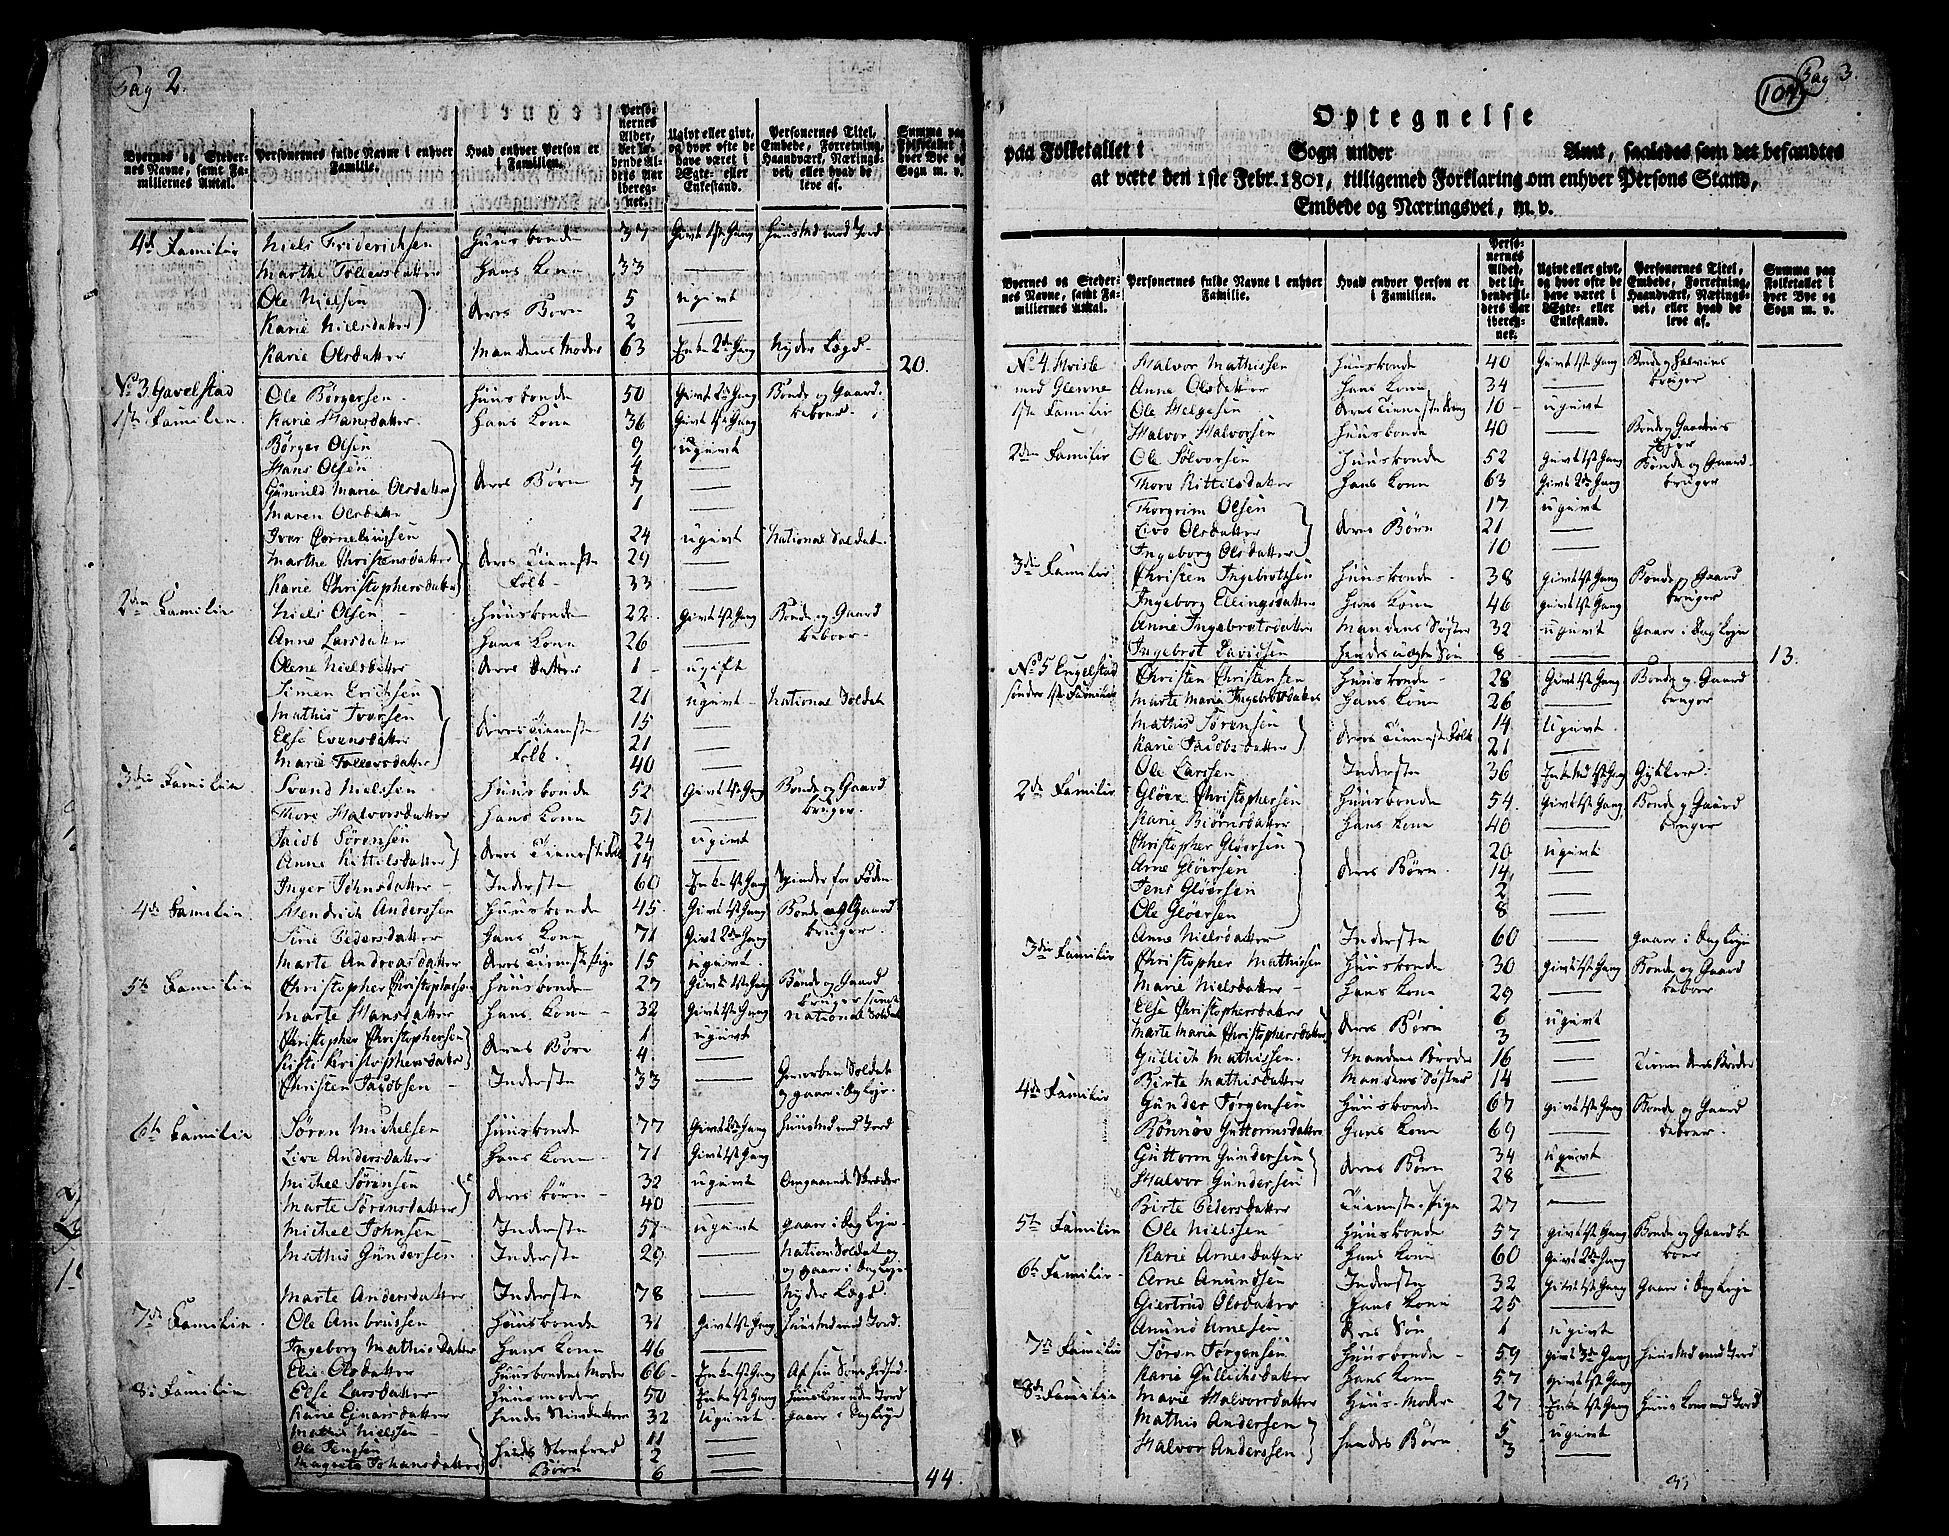 Pag 2.
Byernes og Stedernes Navne, samt Familiernes Antal. | Personernes fulde Navne i enhver Familie. | Hvad enhver Person er i Familien. | Personernes Alder, det løbende Alders Aar iberegnet. | Ugivt eller givt, og hvor ofte de have været i Ægte- eller Enkestand. | Personernes Titel, Embede, Forretning, Haandværk, Næringsvei, eller hvad de leve af. | Summa paa Folketallet i hver Bye og Sogn m. v.
4de Familie Niels Friderichsen Huusbonde 37 Givt 1ste Gang Huusmd med Jord
Marthe Tollersdatter Hans Kone 33 —
Ole Nielsen 5 ugivt
deres Børn
Karie Nielsdatter 2 —
Karie Olsdatter Mandens Moder 63 Enke 2de Gang Nyder Lægd 20.
No 3 Gavelstad Ole Børgersen Huusbonde 50 Givt 2de Gang Bonde og Gaard
1ste Familie Karie Hansdatter Hans Kone 36 Givt 1ste Gang beboer
Børger Olsen 9 ugivt
Hans Olsen 4 —
deres Børn
Gunnild Maria Olsdatter 7 —
Maren Olsdatter 1 —
Iver Corneliussen 24 ugivt National Soldat
Marthe Christensdatter deres Tienneste 29 —
Karie Christophersdatter Folk 33 —
2den Familie Niels Olsen Huusbonde 22 Givt 1ste Gang Bonde og Gaard
Anne Larsdatter Hans Kone 26 — beboer
Olene Nielsdatter deres datter 1 ugift
Simen Erichsen 21 ugivt National Soldat
Mathis Iversen 15 —
deres Tienneste
Else Evensdatter 21 —
Folk
Marie Tollersdatter 40 —
3die Familie Svend Nielssen Huusbonde 52 Givt 1ste Gang Bonde og Gaard
Thore Halvorsdatter Hans Kone 51 — bruger
Jacob Sørensen 24 ugivt
deres Tienneste Folk
Anne Kittilsdatter 14 —
Inger Johnsdatter Inderste 60 Enke 1ste Gang Spinder for Føden
4de Familie Hendrich Anderssen Huusbonde 45 Givt 1ste Gang Bonde og Gaard
Sirie Pedersdatter Hans Kone 71 Givt 2de Gang bruger
Marte Andreasdatter deres Tienneste Pige 15 ugivt
5te Familie Christopher Christophersen Huusbonde 27 Givt 1ste Gang Bonde og Gaard
Marte Hansdatter Hans Kone 32 Givt 1ste Gang bruger samt National Soldat
Christopher Christophersen 1 ugivt
deres Børn
Kisti Kristophersdatter 4 —
Christen Jacobsen Inderste 33 — Gevorben Soldat og gaar i Dagleje
6te Familie Søren Michelsen Huusbonde 77 Givt 2de Gang Huusmd med Jord
Live Andersdatter Hans Kone 71 Givt 1ste Gang
Michel Sørensen 32 ugivt Omgaaende Skræder
deres børn
Marte Sørensdatter 40 —
Michel Johnsen Inderste 51 ugivt gaar i Dagleje
Mathis Gundersen Inderste 29 — Nation: Soldat og og gaar i Dagleje
Marte Andersdatter Inderste 78 — Nyder Lægd
7de Familie Ole Ambrussen Huusbonde 31 Givt 1ste Gang Huusmd med Jord
Ingeborg Mathis Datter Hans Kone 46 —
Elie Olsdatter Huusbondens Moder 66 Enke 1ste Gang
8de Familie Else Larsdatter Huusmoder 50 Enke 1ste Gang Huuskone med Jord
Karie Ejnarsdatter hendes Steendatter 32 Ugivt gaar i Dagleje
Mathis Nielssen 11 —
Ole Jensen 2 —
Børn
Magrete Johansdatter 6 — 44.
Pag 3.
Optegnelse
paa Folketallet i Sogn under Amt, saaledes som det befandtes
at være den 1ste Febr. 1801, tilligemed Forklaring om enhver Persons Stand,
Embede og Næringsvei, m. v.
Byernes og Stedernes Navne, samt Familiernes Antal. | Personernes fulde Navne i enhver Familie. | Hvad enhver Person er i Familien. | Personernes Alder, det løbende Alders Aar iberegnet. | Ugivt eller givt, og hvor ofte de have været i Ægte- eller Enkestand. | Personernes Titel, Embede, Forretning, Haandværk, Næringsvei, eller hvad de leve af. | Summa paa Folketallet i hver Bye og Sogn m. v.
No 4 Hvisle Halvor Mathissen Huusbonde 40 Givt 1ste Gang Bonde og
med Glenne Anne Olsdatter Hans Kone 34 — bruger
1ste Familie Ole Helgesen deres Tienneste dreng 10 ugivt
Halvor Halvorsen Huusbonde 40 — Bonde og
2den Familie Ole Sølvorsen Huusbonde 52 Givt 1ste Gang Bonde og Gaard
Thore Kittilsdatter Hans Kone 63 Givt 2de Gang bruger
Thorgrim Olsen 17 ugivt
Live Olsdatter deres Børn 21 —
Ingeborg Olsdatter 10 —
3die Familie Christen Ingebrethsen Huusbonde 38 Givt 1ste Gang Bonde og Gaard
Ingeborg Ellingsdatter Hans Kone 46 Givt 1ste Gang bruger
Anne Ingebretsdatter Mandens Søster 32 ugivt Gaar i Dagleje
Ingebret Davidsen hendes uægte Søn 8 — 13.
No 5 Engelstad Christen Christensen Huusbonde 28 Givt 1ste Gang Bonde og Gaard
søndre 1ste Familie Marte Maria Ingebretsdatter Hans Kone 26 — bruger
Mathis Sørensen 14 Ugivt
deres Tienneste Folk
Karie Jacobsdatter 21 —
Ole Larssen Inderste 36 Enkemd 1ste Gang
2de Familie Gløer Christophersen Huusbonde 54 Givt 1ste Gang Bonde og Gaard
Karie Biørnsdatter Hans Kone 40 — bruger
Christopher Gløersen 20 ugivt
Arne Gløersen deres Børn 14 —
Jens Gløersen 2 —
Ole Gløersen 8 —
Anne Nielsdatter Inderste 60 — gaar i Dagleje
3die Familie Christopher Mathissen Huusbonde 30 Givt 1ste Gang Bonde og Gaard
Marie Nielsdatter Hans Kone 29 — beboer
Else Christophersdatter 6 ugivt
deres Børn
Marte Maria Christophersdatter 3 —
Gullich Mathissen Mandens Broder 16 — Tiener deres Broder
Birte Mathisdatter Mandens Søster 14 —
4de Familie Gunder Jørgensen Huusbonde 67 Givt 1ste Gang Bonde og Gaard
Rønnov Guttormsdatter Hans Kone 69 — beboer
Guttorm Gundersen 34 Ugivt
deres Børn
Halvor Gundersen 28 —
Birte Pedersdatter Tienneste Pige 27 —
5te Familie Ole Nielssen Huusbonde 57 Givt 1ste Gang Bonde og Gaard be
Karie Arnesdatter Hans Kone 60 Givt 2de Gang boer
6te Familie Arne Amundsen Inderste 32 Givt 1ste Gang Gaar i Dagleje
Giertrud Olsdatter Hans Kone 25 —
Amund Arnesen deres Søn 1 ugivt
7de Familie Søren Jørgensen Huusbonde 59 Givt 3de Gang Huusmd med Jord
Karie Gullichsdatter Hans Kone 57 Givt 1ste Gang
8de Familie Marie Halvorsdatter Huus-Moder 27 Enke 1ste Gang Huus Kone med Jord
Mathis Andersen 5 ugivt
hendes Børn
Halvor Anderssen 3 —
33